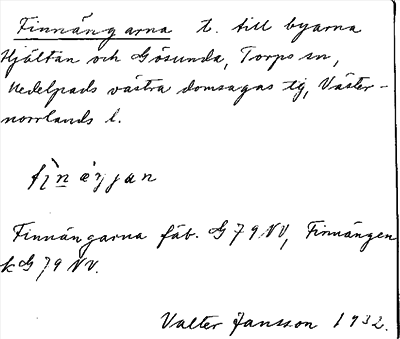 Finnängarna t. till byarna
Hjältan och Gösunda, Torps sn,
Medelpads västra domsagas tg, Väster-
norrlands l.
Finnängarna fäb. G 79 NV, Finnängen
k G 79 NV.
Valter Jansson 1932.